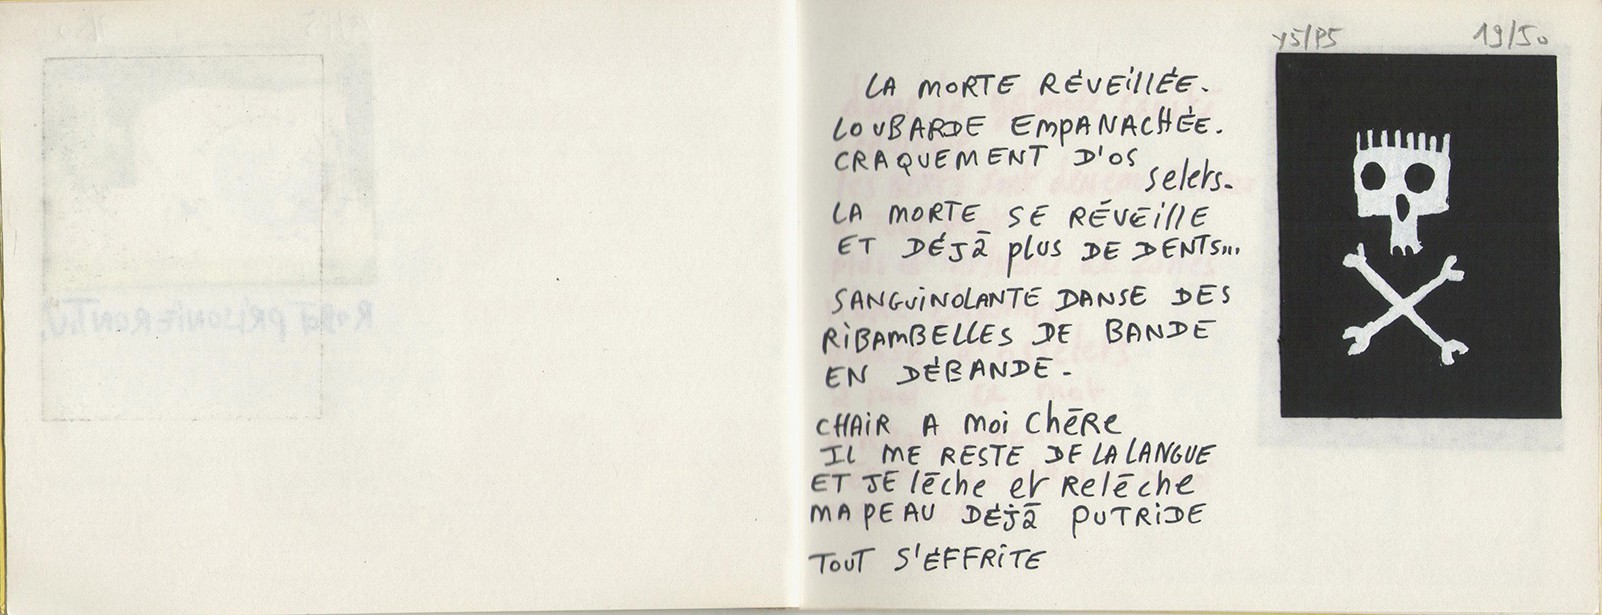 Y5/P5 19/50
LA MORTE RÉVEILLÉE.
LOUBARDE EMPANACHÉE.
CRAQUEMENT D'OS
selets.
LA MORTE SE RÉVEILLE
ET DÉJÀ plus DE DENTS...
SANGUINOLANTE DANSE DES
RIBAMBELLES DE BANDE
EN DÉBANDE.
CHAIR A MOI CHÈRE
IL ME RESTE DE LA LANGUE
ET JE lèche et Relèche
MA PEAU DÉJÀ PUTRIDE
TOUT S'ÉFFRITE